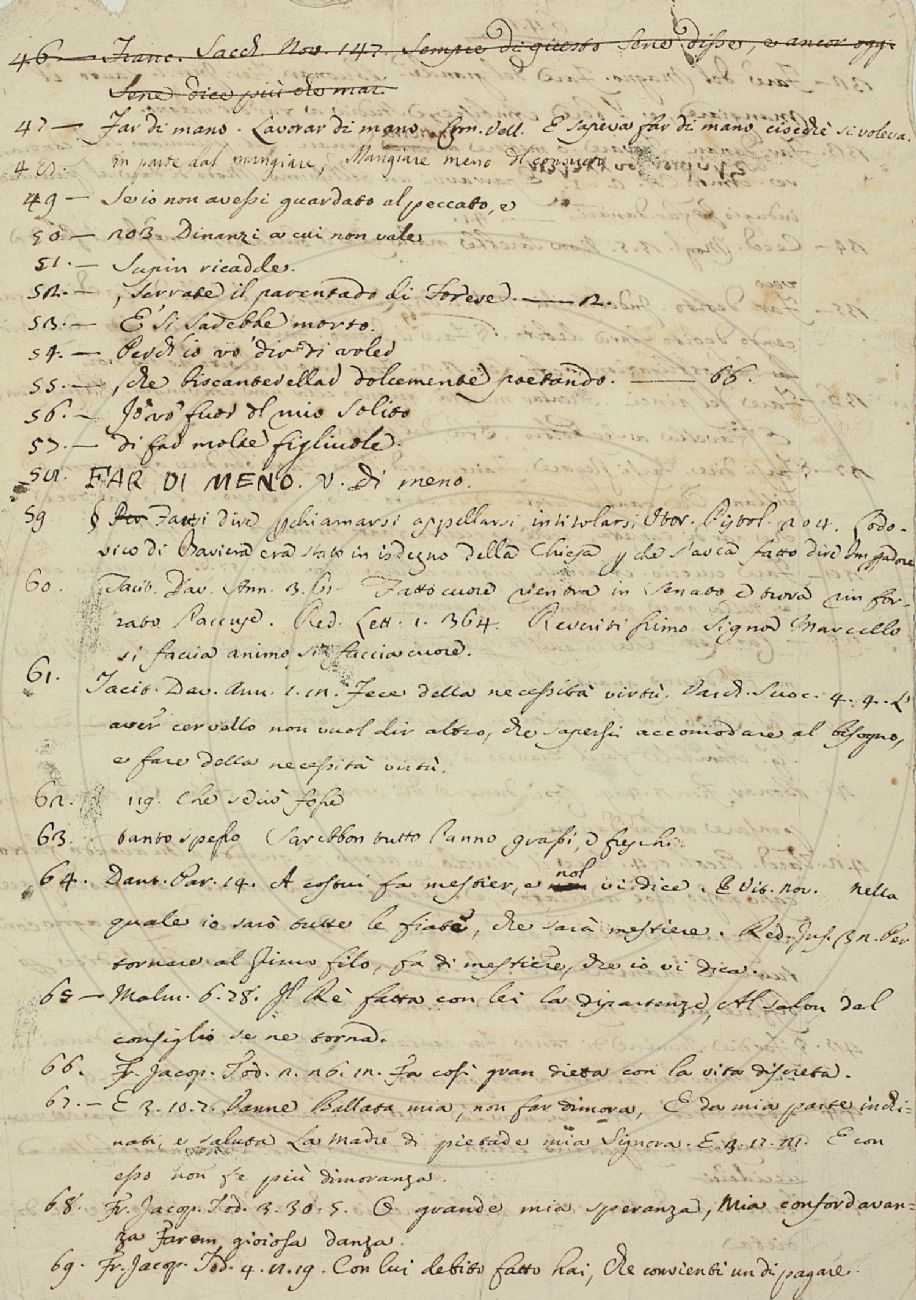 46 — Franc. Sacch. Nov. 147. Sempre di questo sene disse, e ancor oggi
sene dice più che mai.
47 — Far di mano. Lavorar di mano. Ben. Cell. E sapeva far di mano, ciocchè si voleva.
48. In parte dal mangiare, Mangiare meno del consueto
49 — Se io non avessi guardato al peccato, e
50 — 203. Dinanzi a cui non vale
51. — Supin ricadde.
52. — , serrate il parentado di Forese. — 12.
53. — E' si sarebbe morto.
54. — Perch' io vo' dir di voler
55. — , che biscanterellar dolcemente poetando. — 66.
56. — Io vo' fuor del mio solito
57. — di far molte figliuole.
58. FAR DI MENO. V. Di meno.
59 § Per Farsi dire chiamarsi appellarsi, intitolarsi Stor. Pistol. 204. Lodo-
vico di Baviera era stato in isdegno della Chiesa p che s'avea fatto dire Imperadore
60. Tacit. Dav. Ann. 3. 61. Fatto cuore ventra in Senato e trova rinfor-
zate l'accuse. Red. Lett. 1. 364. Reveritissimo Signor Marcello
si faccia animo, si faccia cuore.
61. Tacit. Dav. Ann. 1. 12. Fece della necessità virtù. Varch. Suoc. 4. 4. L'
aver cervello non vuol dir altro, che sapersi accomodare al bisogno,
e fare della necessità virtù.
62. 119. Che se ciò fosse
63. tanto spesso Sarebbon tutto l'anno grassi, e freschi
64. Dant. Par. 14. A costui fa mestier, e nol vi dice. E Vit. nov. nella
quale io sarò tutte le fiate, che sarà mestiere. Red. Ins. 32. Per
tornare al primo filo, fa di mestiere, che io vi dica.
65 — Malm. 6. 28. Il Rè fatta con lei la dipartenza, Al salon del
consiglio se ne torna.
66. Fr. Jacop. Tod. 2. 26. 12. Fa così gran dieta con la vita discreta.
67. — E 3. 10. 7. Vanne Ballata mia, non far dimora, E da mia parte inchi-
nati, e saluta La madre di pietade mia Signora. E 3. 12. 21. E con
esso non fe più dimoranza.
68. Fr. Jacop. Tod. 3. 30. 5. O grande mia speranza, Mia confordavan-
za Farem gioiosa danza.
69. Fr. Jacop. Tod. 4. 12. 19. Con lui debito fatto hai, Che convienti un dì pagare.